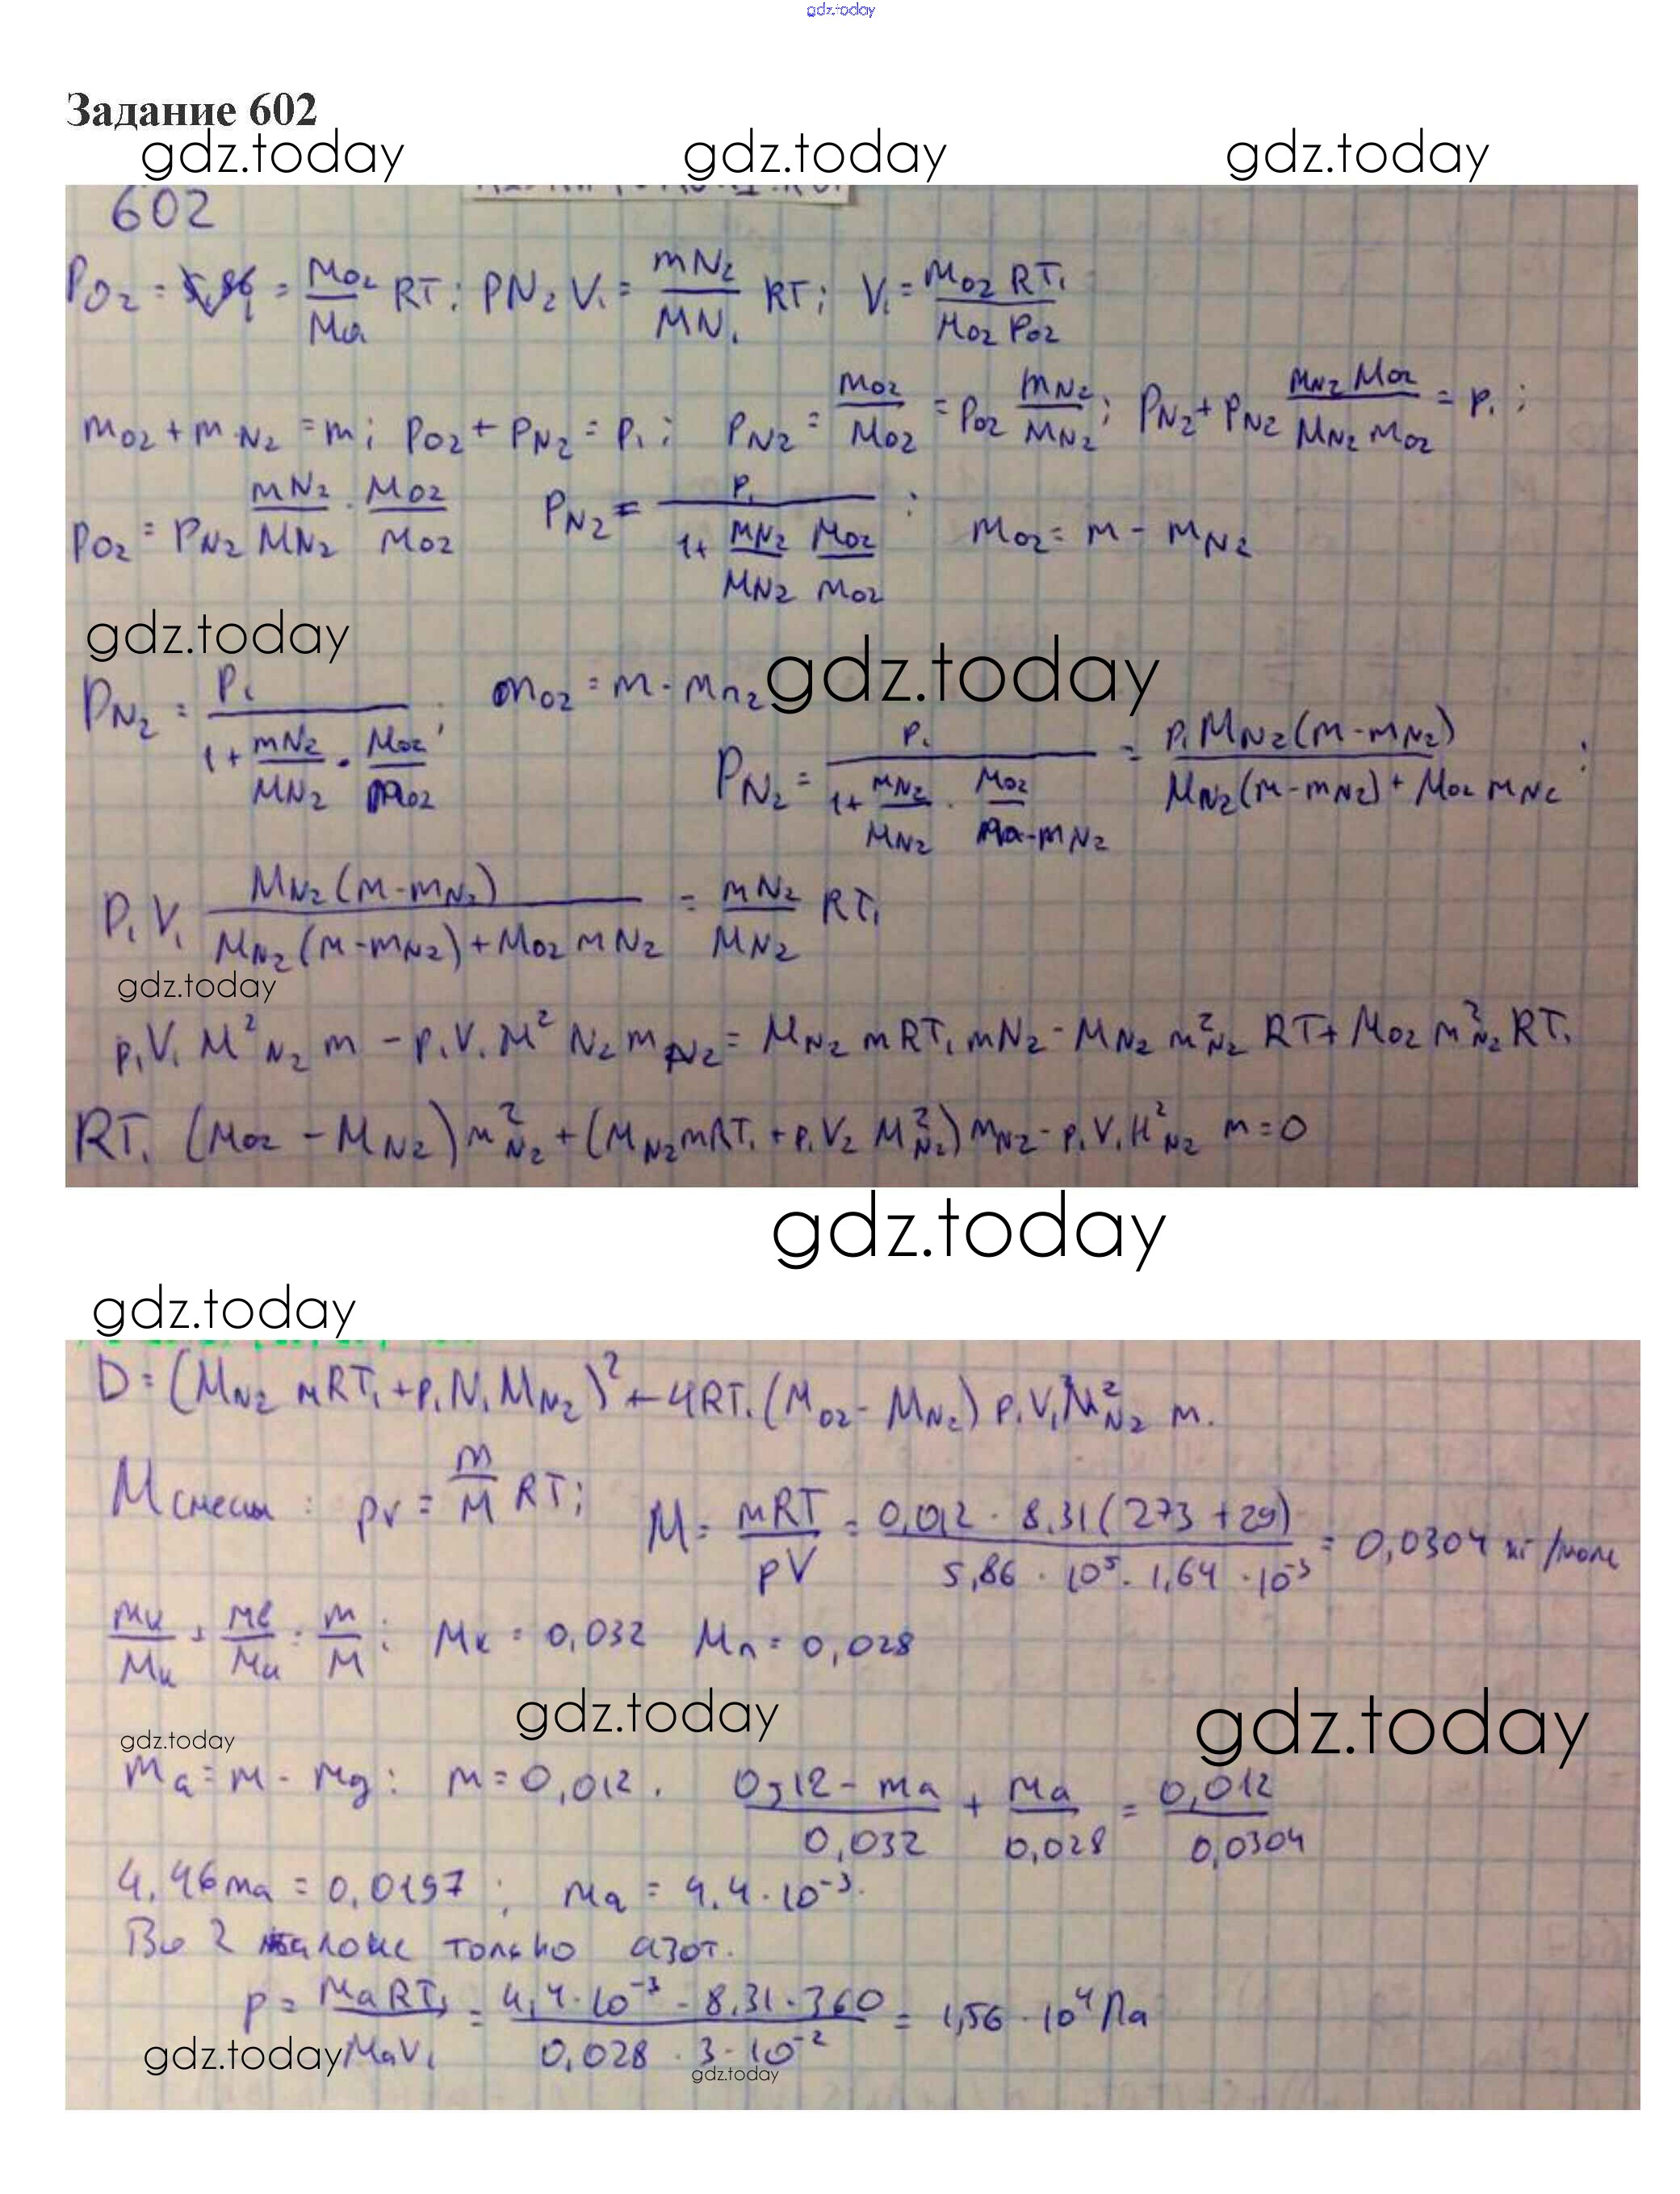 gdz.today
Задание 602
gdz.today gdz.today gdz.today
602
P_{O2} = = \frac{M_{O2}}{M_a} RT; P_{N2} V_1 = \frac{m_{N2}}{M_{N_1}} RT; V_1 = \frac{M_{O2} RT_1}{M_{O2} P_{O2}}
m_{O2} + m_{N2} = m; p_{O2} + p_{N2} = p_1; p_{N2} = \frac{m_{O2}}{M_{O2}} = p_{O2} \frac{m_{N2}}{M_{N2}}; p_{N2} + p_{N2} \frac{m_{N2} M_{O2}}{M_{N2} m_{O2}} = p_1;
p_{O2} = p_{N2} \frac{m_{N2}}{M_{N2}} \cdot \frac{M_{O2}}{m_{O2}} P_{N2} = \frac{P_1}{1 + \frac{m_{N2}}{M_{N2}} \frac{M_{O2}}{m_{O2}}}; m_{O2} = m - m_{N2}
gdz.today
gdz.today
P_{N2} = \frac{P_1}{1 + \frac{m_{N2}}{M_{N2}} \cdot \frac{M_{O2}}{m_{O2}}}; m_{O2} = m - m_{n2}
P_{N2} = \frac{P_1}{1 + \frac{m_{N2}}{M_{N2}} \cdot \frac{M_{O2}}{m_a - m_{N2}}} = \frac{p_1 M_{N2} (m - m_{N2})}{M_{N2} (m - m_{N2}) + M_{O2} m_{N2}};
P_1 V_1 \frac{M_{N2} (m - m_{N2})}{M_{N2} (m - m_{N2}) + M_{O2} m_{N2}} = \frac{m_{N2}}{M_{N2}} RT_1
gdz.today
p_1 V_1 M^2_{N2} m - p_1 V_1 M^2_{N2} m_{N2} = M_{N2} m RT_1 m_{N2} - M_{N2} m^2_{N2} RT + M_{O2} m^2_{N2} RT_1
RT_1 (M_{O2} - M_{N2}) m^2_{N2} + (M_{N2} m RT_1 + p_1 V_2 M^2_{N2}) m_{N2} - p_1 V_1 M^2_{N2} m = 0
gdz.today
gdz.today
D = (M_{N2} m RT_1 + p_1 N_1 M_{N2})^2 + 4 RT_1 (M_{O2} - M_{N2}) p_1 V_1 M^2_{N2} m.
M смеси: pV = \frac{m}{M} RT; M = \frac{mRT}{pV} = \frac{0,012 · 8,31 (273 + 29)}{5,86 · 10^5 · 1,64 · 10^{-3}} = 0,0304 кг/моль
\frac{m_к}{M_к} + \frac{m_в}{M_к} = \frac{m}{M}; M_к = 0,032 M_n = 0,028
gdz.today
gdz.today
gdz.today
m_a = m - m_g: m = 0,012. \frac{0,12 - m_a}{0,032} + \frac{m_a}{0,028} = \frac{0,012}{0,0304}
4,46 m_a = 0,0197; m_a = 4,4 · 10^{-3}.
Во 2 балоне только азот.
p = \frac{m_a RT_1}{M_a V_1} = \frac{4,4 · 10^{-3} · 8,31 · 360}{0,028 · 3 · 10^{-2}} = 1,56 · 10^4 Па
gdz.today
gdz.today